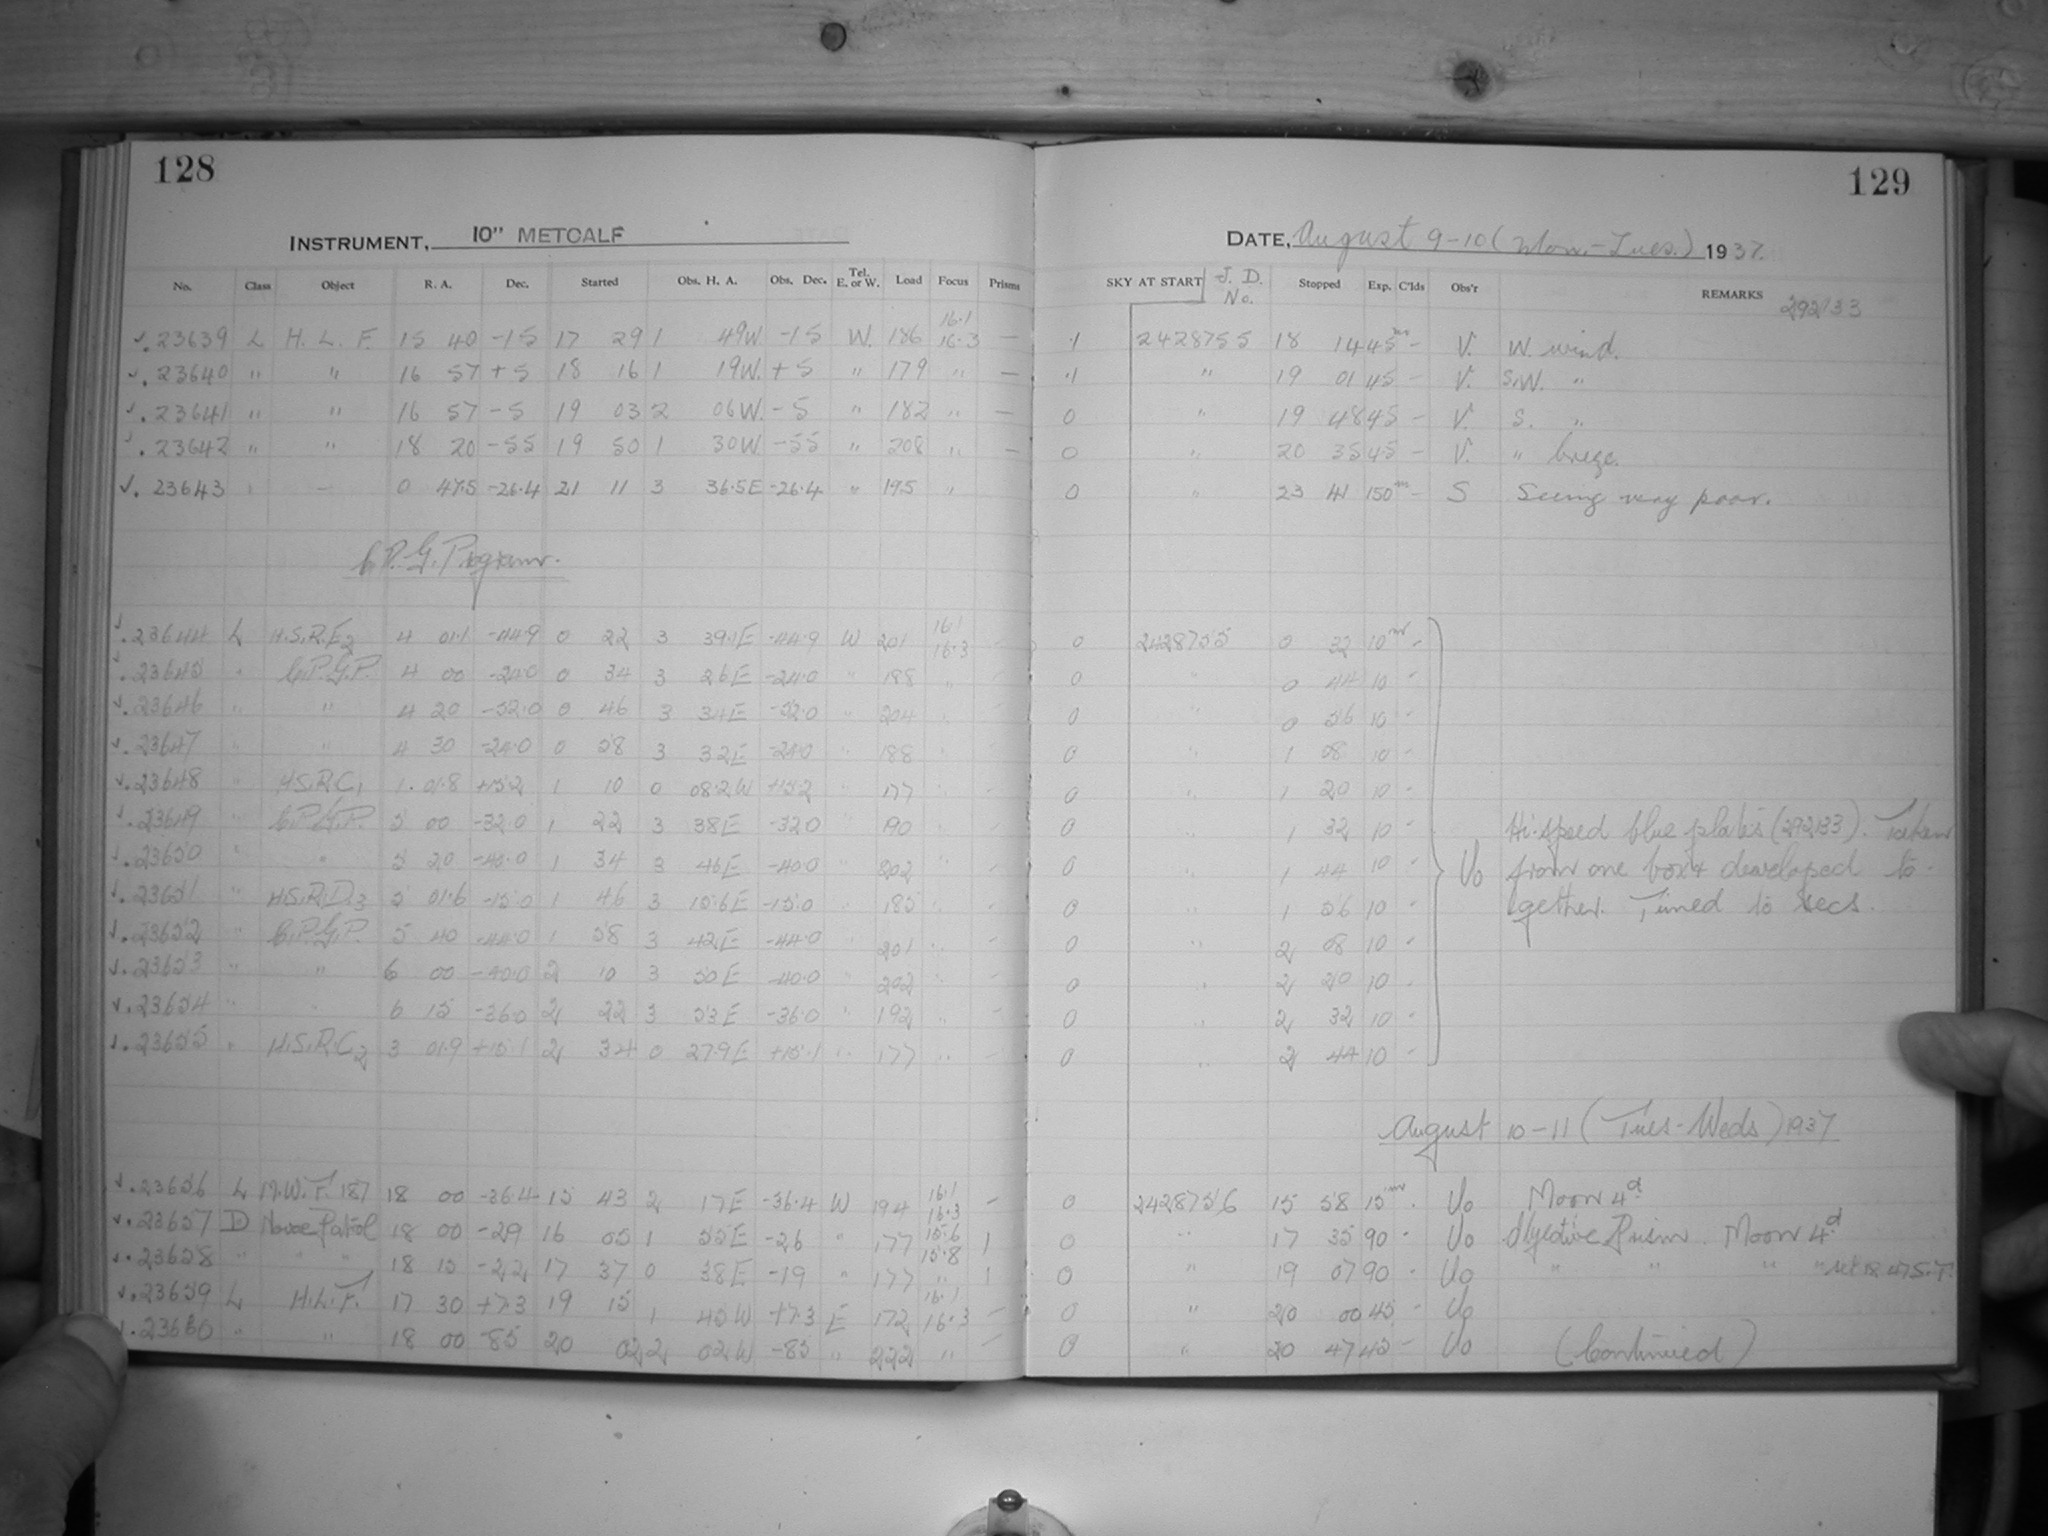 128
129
INSTRUMENT, 10" METCALF
DATE, August 9-10 (Mon.-Tues.) 1937.
No. Class Object R. A. Dec. Started Obs. H. A. Obs. Dec. Tel. E. or W. Load Focus Prisms SKY AT START J. D. No. Stopped Exp. C'lds Obs'r REMARKS 292133
23639 L H. L. F. 15 40 -15 17 29 1 49W -15 W. 186 16.1 16.3 — .1 2428755 18 14 45m - V. W. wind.
23640 " " 16 57 +5 18 16 1 19W. +5 " 179 " — .1 " 19 01 45 - V. S.W. "
23641 " " 16 57 -5 19 03 2 06W. -5 " 182 " — 0 " 19 48 45 - V. S. "
23642 " " 18 20 -55 19 50 1 30W -55 " 208 " — 0 " 20 35 45 - V. "
23643 " — 0 47.5 -26.4 21 11 3 36.5E -26.4 " 195 " 0 " 23 41 150m - S Seeing very poor.
C.P.G. Program.
23644 L H.S.R.E3 4 01.1 -44.9 0 22 3 39.1E -44.9 W 201 16.1 16.3 - 0 2428755 0 32 10m -
23645 " C.P.G.P. 4 00 -24.0 0 34 3 26E -24.0 " 188 " - 0 " 0 44 10 -
23646 " " 4 20 -52.0 0 46 3 34E -52.0 " 204 " - 0 " 0 56 10 -
23647 " " 4 30 -24.0 0 58 3 32E -24.0 " 188 " - 0 " 1 08 10 -
23648 " H.S.R.C1 1 01.8 +15.2 1 10 0 08.2W +15.2 " 177 " - 0 " 1 20 10 -
23649 " C.P.G.P. 5 00 -32.0 1 22 3 38E -32.0 " 190 " - 0 " 1 32 10 - Hi-speed blue plates (292133). Taken
23650 " " 5 20 -40.0 1 34 3 46E -40.0 " 202 " - 0 " 1 44 10 - Uo from one box & developed to-
23651 " H.S.R.D3 5 01.6 -15.0 1 46 3 15.6E -15.0 " 185 " - 0 " 1 56 10 - gether. Timed to secs.
23652 " C.P.G.P. 5 40 -44.0 1 58 3 42E -44.0 " 201 " - 0 " 2 08 10 -
23653 " " 6 00 -40.0 2 10 3 50E -40.0 " 202 " - 0 " 2 20 10 -
23654 " " 6 15 -36.0 2 22 3 53E -36.0 " 192 " - 0 " 2 32 10 -
23655 " H.S.R.C2 3 01.9 +15.1 2 34 0 27.9E +15.1 " 177 " - 0 " 2 44 10 -
August 10-11 (Tues-Weds) 1937
23656 L M.W.F. 187 18 00 -36.4 15 43 2 17E -36.4 W 194 16.1 16.3 - 0 2428756 15 58 15m - Uo Moon 4d
23657 D Novae Patrol 18 00 -29 16 05 1 55E -26 " 177 15.6 15.8 1 0 " 17 35 90 - Uo Objective Prism. Moon 4d
23658 " " " 18 15 -22 17 37 0 38E -19 " 177 " 1 0 " 19 07 90 - Uo " " " " set 18 47 S.T.
23659 L H.L.F. 17 30 +7.3 19 15 1 45W +7.3 E 172 16.1 16.3 - 0 " 20 00 45 - Uo
23660 " " 18 00 -85 20 02 2 02W -85 " 222 " - 0 " 20 47 45 - Uo (Continued)